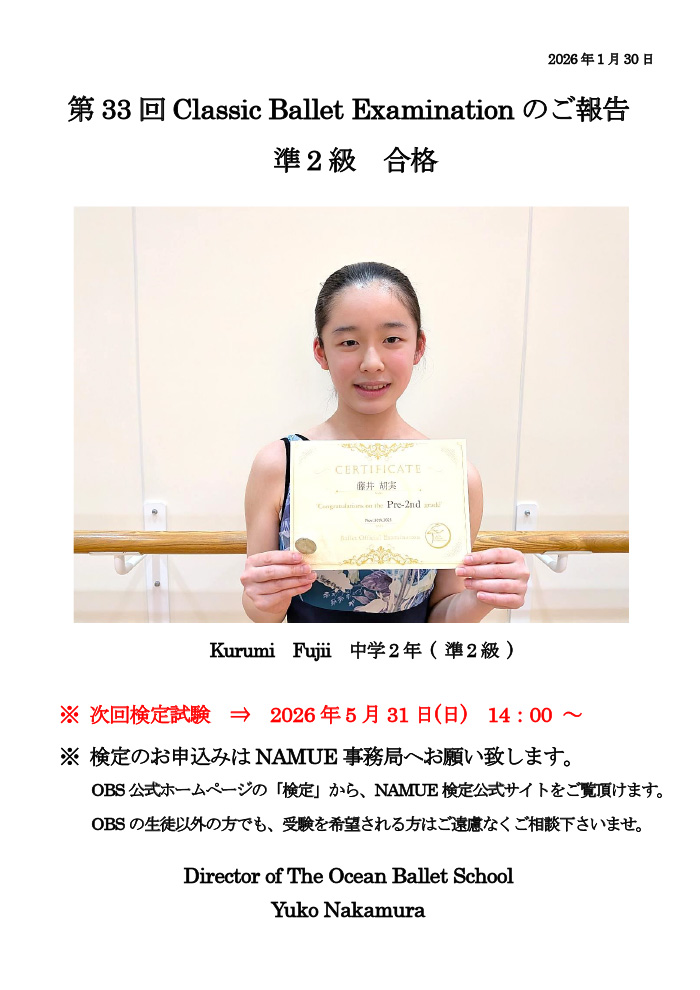 2026年1月30日
第33回 Classic Ballet Examination のご報告
準2級　合格
CERTIFICATE
藤井 胡実
Congratulations on the Pre-2nd grade
Ballet Official Examination
Kurumi　Fujii　中学2年（ 準2級 ）
※ 次回検定試験　⇒　2026年5月31日(日)　14：00 ～
※ 検定のお申込みは NAMUE 事務局へお願い致します。
OBS 公式ホームページの「検定」から、NAMUE 検定公式サイトをご覧頂けます。
OBS の生徒以外の方でも、受験を希望される方はご遠慮なくご相談下さいませ。
Director of The Ocean Ballet School
Yuko Nakamura